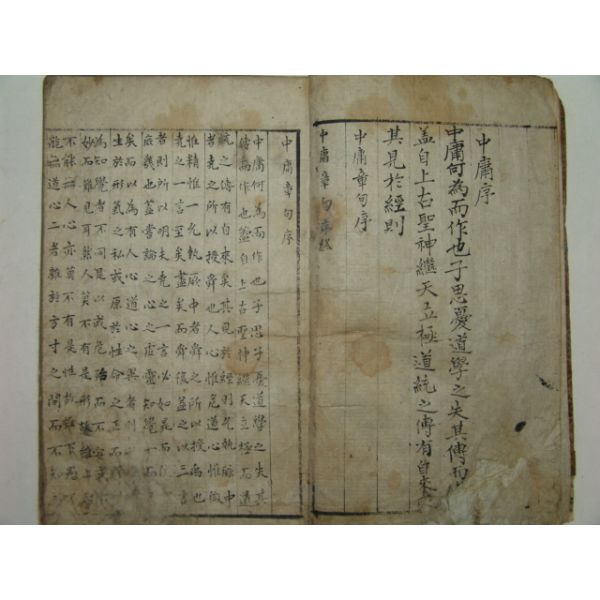 中庸序
中庸何為而作也子思憂道學之失其傳而
蓋自上古聖神繼天立極道統之傳有自來
其見於經則
中庸章句序
中庸章句序
中庸章句序
中庸何為而作也子思子憂道學之失其
傳而作也蓋自上古聖神繼天立極而道
統之傳有自來矣其見於經則允執厥中
者堯之所以授舜也人心惟危道心惟微
惟精惟一允執厥中者舜之所以授禹也
堯之一言至矣盡矣而舜復益之以三言
者則所以明夫堯之一言必如是而
庶幾也蓋嘗論之心之虛靈知覺一而
矣而以為有人心道心之異者則
生於形氣之私或原於性命之正而
為知覺者不同是以或危殆而不安
妙而難見耳然人莫不有是形故雖上
不能無人心亦莫不有是性故雖下愚
能無道心二者雜於方寸之間而不知